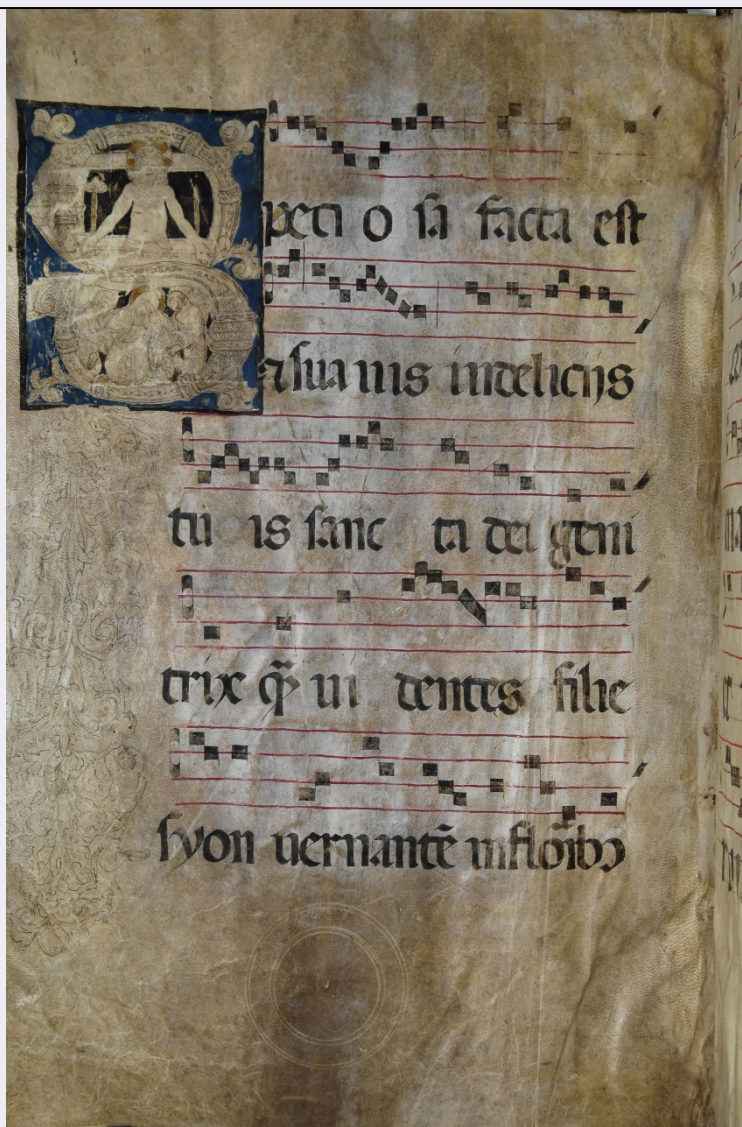 Speti o sa facta est
et sua uis indelicijs
tu is sanc ta dei geni
trix q̄ȝ ui dentes filie
syon uernantē in florībꝰ